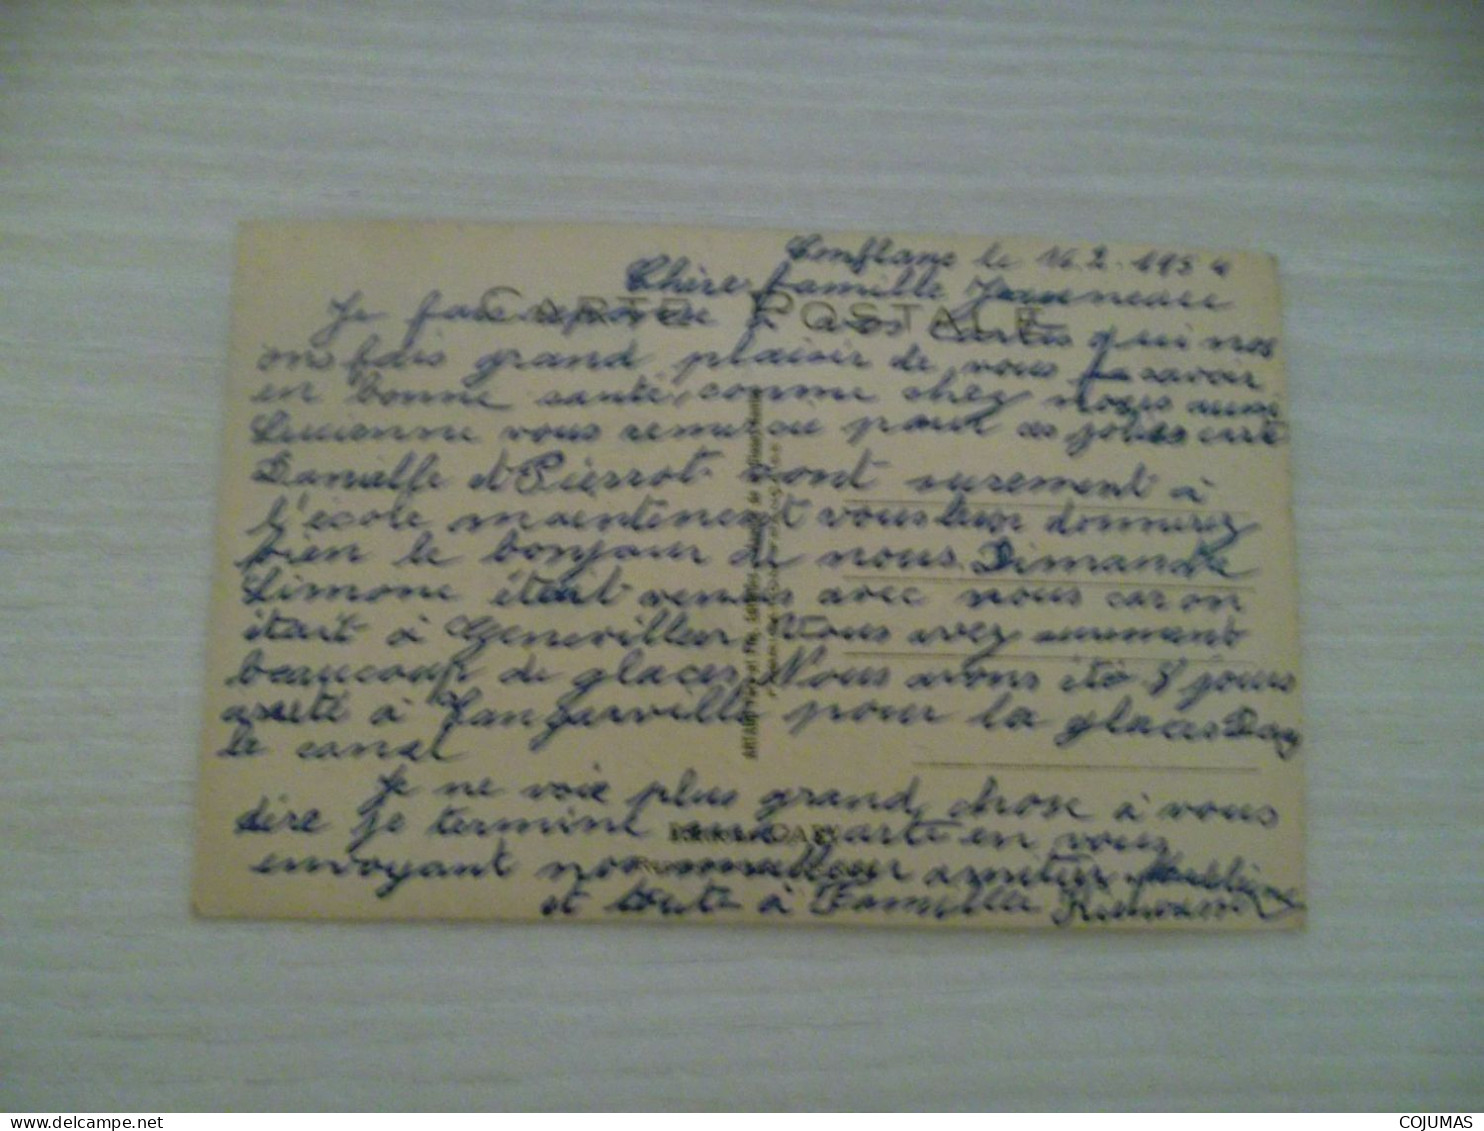 Conflans le 16.2.1954
Chère famille
CARTE POSTALE
Je fais réponse à vos cartes qui nos
ons fais grand plaisir de vous savoir
en bonne santé, comme chez nous aussi
Lucienne vous remersie pour ces jolies carte
Danielle et Pierrot vont surement à
l'école maentenent vous leur donnerez
bien le bonjour de nous. Dimanche
Simone étai venus avec nous car on
était à Genevillier. Vous avez surement
beaucoup de glaces. Nous avons étè 8 jours
arreté à Tangarville pour la glaces Dans
le canal
Je ne voie plus grand chose à vous
dire je termine ma carte en vous
envoyant nos meilleur amitier
et toute à Famille
COJUMAS